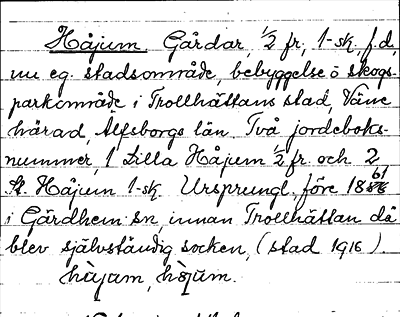 Håjum Gårdar, 1/2 fr, 1-sk, f.d,
nu eg. stadsområde, bebyggelse o skogs-
parkområde i Trollhättans stad, Väne
härad, Älfsborgs län. Två jordeboks-
nummer, 1 Lilla Håjum 1/2 fr. och 2
St. Håjum 1-sk. Ursprungl. före 1861
i Gärdhem sn, innan Trollhättan då
blev självständig socken, (stad 1916).
hàjam, hòjum.